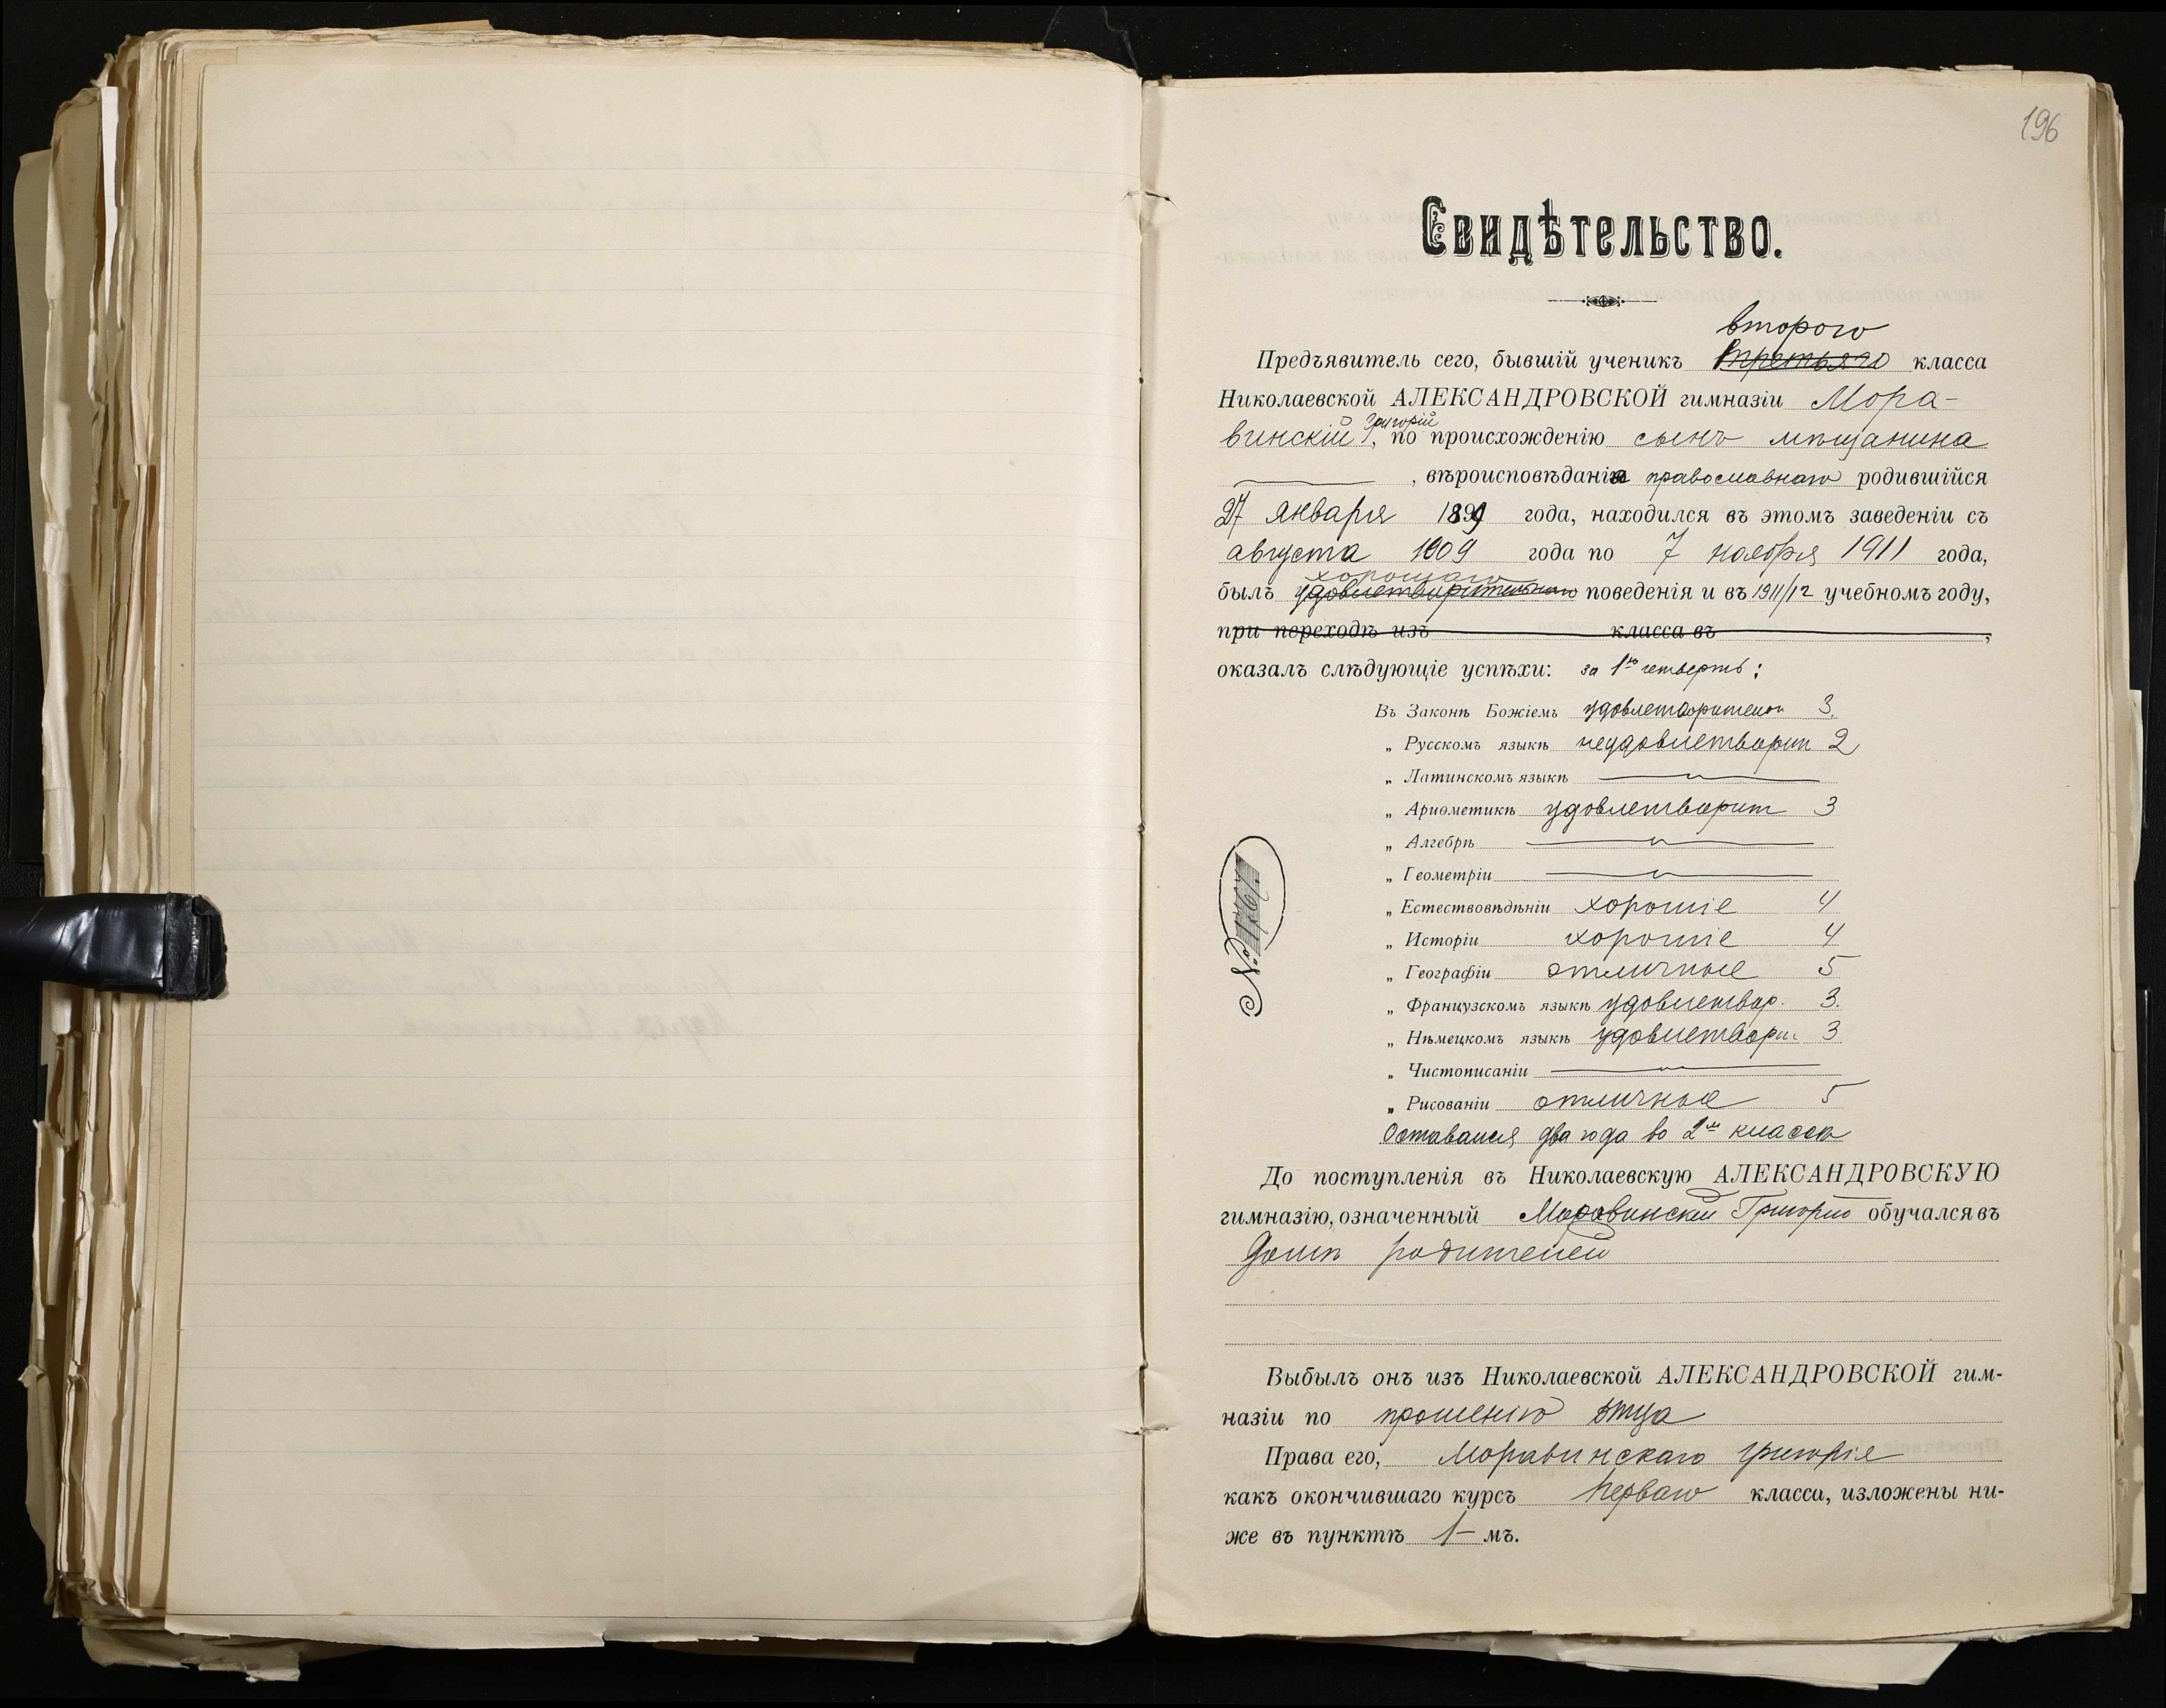 196
Свидѣтельство.
второго
Предъявитель сего, бывшій ученикъ третьяго класса
Николаевской АЛЕКСАНДРОВСКОЙ гимназіи Мора-
Григорій
винскій, по происхожденію сынъ мѣщанина
, вѣроисповѣданія православнаго родившійся
27 января 1899 года, находился въ этомъ заведеніи съ
августа 1909 года по 7 ноября 1911 года,
хорошаго
былъ удовлетворительнаго поведенія и въ 1911/12 учебномъ году,
при переходѣ изъ класса въ ,
оказалъ слѣдующіе успѣхи: за 1ю четверть:
Въ Законѣ Божіемъ удовлетворителен 3.
„ Русскомъ языкѣ неудовлетворит 2
„ Латинскомъ языкѣ
„ Ариѳметикѣ удовлетворит 3
„ Алгебрѣ
„ Геометріи
„ Естествовѣдѣніи хорошіе 4
„ Исторіи хорошіе 4
„ Географіи отличные 5
„ Французскомъ языкѣ удовлетвор. 3.
„ Нѣмецкомъ языкѣ удовлетвори. 3
„ Чистописаніи
„ Рисованіи отличные 5
Оставался два года во 2мъ классѣ
№
До поступленія въ Николаевскую АЛЕКСАНДРОВСКУЮ
гимназію, означенный Моравинскій Григорій обучался въ
домѣ родителей
Выбылъ онъ изъ Николаевской АЛЕКСАНДРОВСКОЙ гим-
назіи по прошенію отца
Права его, Моравинскаго Григорія
какъ окончившаго курсъ перваго класса, изложены ни-
же въ пунктѣ 1-мъ.